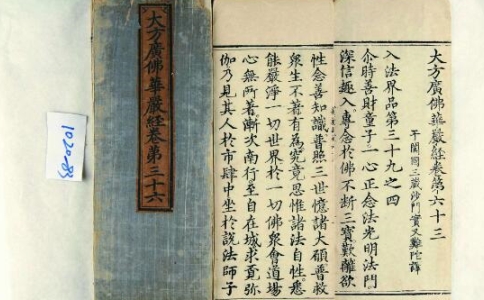 大方廣佛華嚴經卷第六十三
于闐國三藏沙門實叉難陀譯
入法界品第三十九之四
尒時善財童子一心正念法光明法門
深信趣入專念於佛不斷三寶歎離欲
性念善知識普照三世憶諸大願普救
衆生不著有為究竟思惟諸法自性悉
能嚴淨一切世界於一切佛衆會道場
心無所著漸次南行至自在城求覓弥
伽乃見其人於市肆中坐於說法師子
大方廣佛華嚴經卷第三十六
1020-89